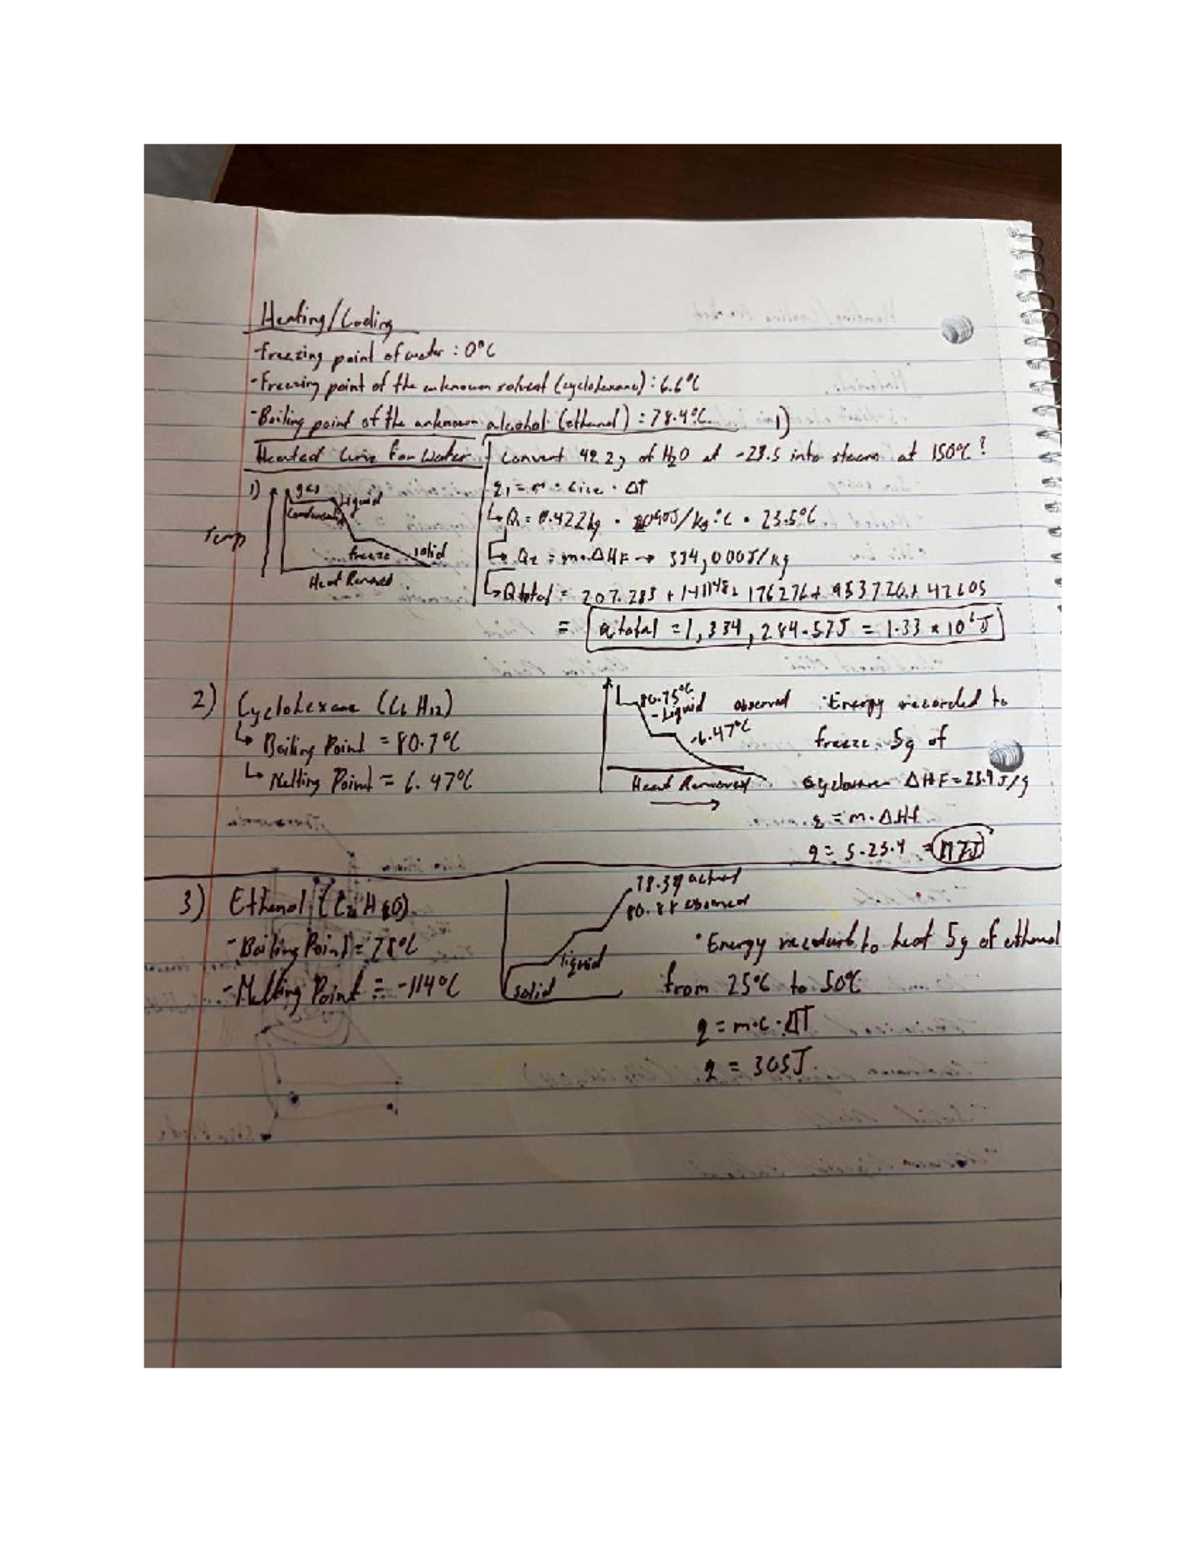 Heating/Cooling
-freezing point of water : 0°C
-Freezing point of the unknown solvent (cyclohexane) : 6.6°C
-Boiling point of the unknown alcohol (ethanol) : 78.4°C
Heated Curve For Water
1)
Temp
gas
Liquid
Condensation
freeze
solid
Heat Removed
1)
Convert 422g of H2O at -23.5 into steam at 150°C?
q1 = m · Cice · ΔT
Q1 = 0.422kg · 2090J/kg·°C · 23.5°C
Q2 = m·ΔHF → 334,000J/kg
Qtotal = 207.285 + 141148 + 176276 + 953720 + 42605
= qtotal = 1,334,284.57J = 1.33 x 10^6 J
2) Cyclohexane (C6H12)
Boiling Point = 80.7°C
Melting Point = 6.47°C
80.75°C
-Liquid
observed
-6.47°C
Heat Removed
Energy recorded to
freeze 5g of
cyclohexane ΔHF = 23.4 J/g
q = m·ΔHf
q = 5·23.4 = 117J
3) Ethanol (C2H6O)
-Boiling Point = 78°C
-Melting Point = -114°C
78.39 actual
80.88 observed
liquid
solid
Energy recorded to heat 5g of ethanol
from 25°C to 50°C
q = m·c·ΔT
q = 305J